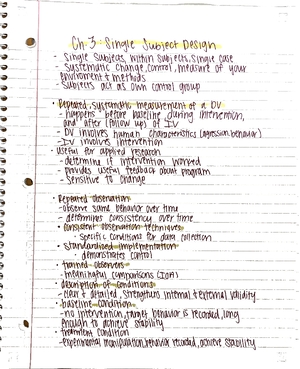 Ch 3 Single Subject Design
- Single Subjects, within subjects, single case
- Systematic change, control, measure of your
enviroment + methods
- Subjects act as own control group
- Repeated, systematic measurement of a DV
- happens before baseline during intervention,
and after (follow up) of IV
- DV involves human characteristics (agression, behavior)
- IV involves intervention
- useful for applied research
- determine if intervention worked
- provides useful feedback about program
- Sensitive to change
- Repeated observation
- observe same behavior over time
- determines consistency over time
- consistent observation techniques
- specific conditions for data collection
- Standardized implementation
- demonstrates control
- trained observers
- meaningful comparisons (IOA)
- description of conditions
- clear + detailed, strengthens internal + external validity
- baseline condition
- no intervention, target behavior is recorded, long
enough to achieve stability
- treatment condition
- experimental manipulation, behavior recorded, achieve stability